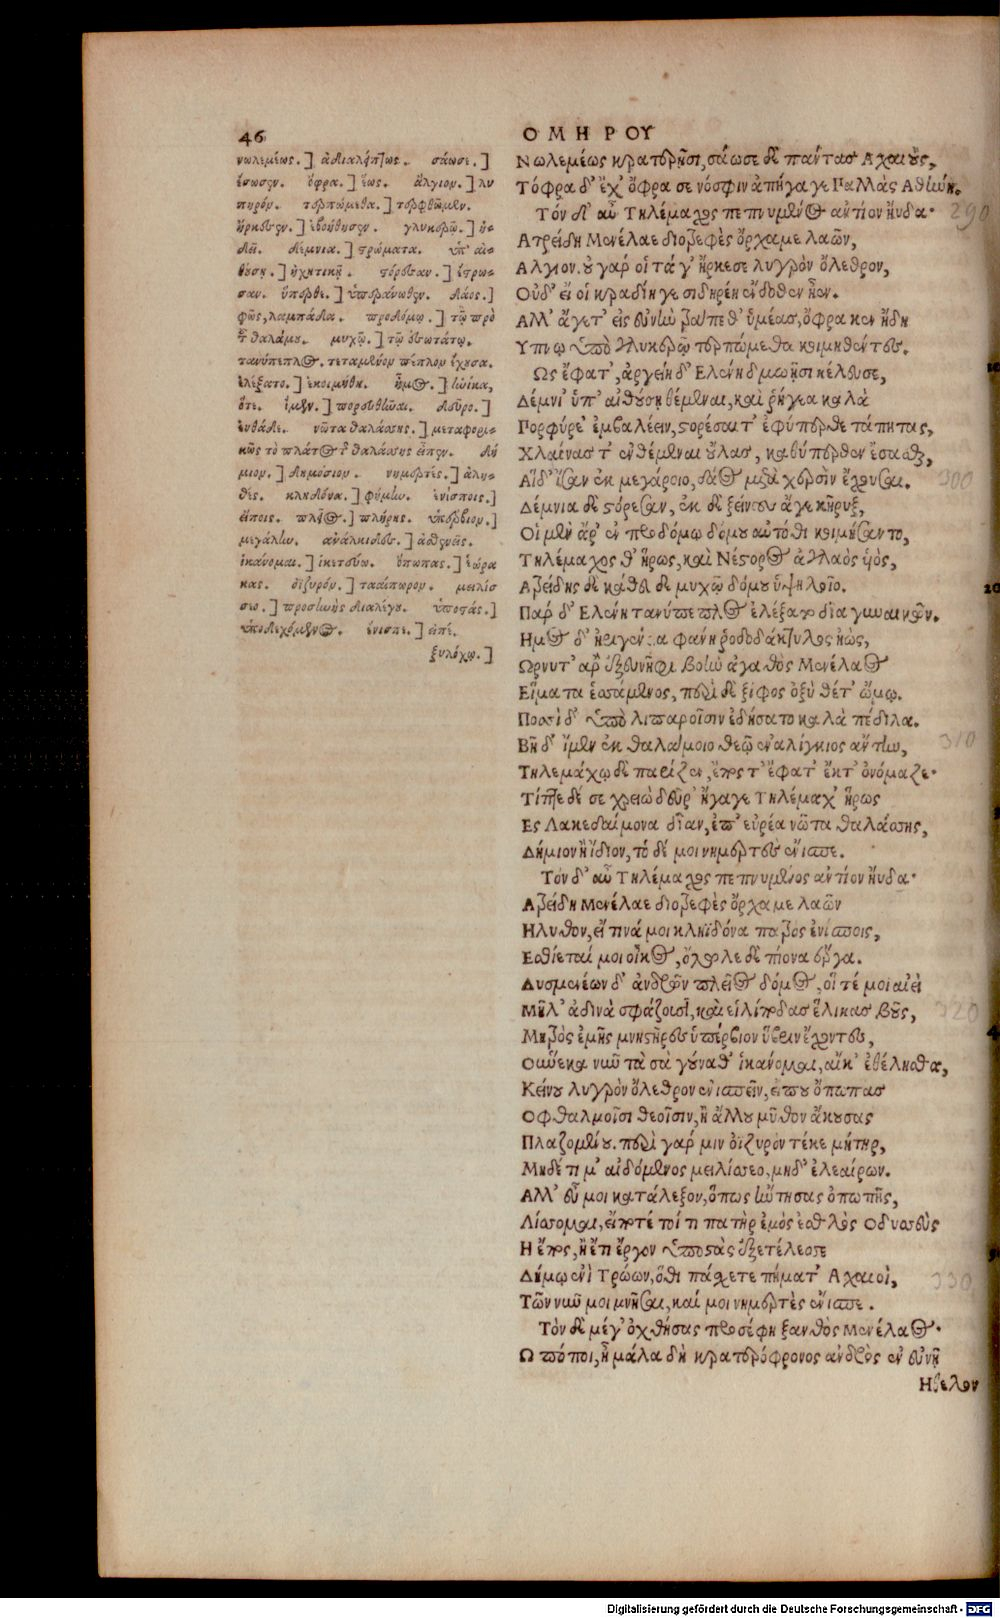 46
ΟΜΗΡΟΥ
νωλεμέως.] ἀδιαλήπτως. σάωσε.]
ἔσωσεν. ὄφρα.] ἕως. ἄλγιον.] λυ
πηρόν. τερπώμεθα.] τερφθῶμεν.
ἤρκεσεν.] ἐβοήθησεν. γλυκερῷ.] ἡ-
δεῖ. δέμνια.] στρώματα. ὑπ' αἰ-
θούσῃ.] ἠχητικῇ. στόρεσαν.] ἔστρω-
σαν. ὕπερθε.] ὑπεράνωθεν. δάος.]
φῶς, λαμπάδα. προδόμῳ.] τῷ πρὸ
τοῦ θαλάμου. μυχῷ.] τῷ ἐσωτάτῳ.
τανύπεπλος. τεταμένον πέπλον ἔχουσα.
ἐλέξατο.] ἐκοιμήθη. ἦμος.] ἡνίκα,
ὅτε. ἴμεν.] πορευθῆναι. δεῦρο.]
ἐνθάδε. νῶτα θαλάσσης.] μεταφορι-
κῶς τὸ πλάτος τοῦ θαλάσσης εἶπεν. δή
μιον.] δημόσιον. νημερτές.] ἀλη-
θές. κληδόνα.] φήμην. ἐνίσποις.]
εἴποις. πλεῖος.] πλήρης. ὑπέρβιον.]
μεγάλην. ἀνάλκιδες.] ἀσθενεῖς.
ἱκάνομαι.] ἱκετεύω. ὄπωπας.] ἑώρα
κας. ὀϊζυρόν.] ταλαίπωρον. μειλίσ
σεο.] προσηνῆς διαλέγου. ὑποστάς.]
ὑποδεχόμενος. ἔνισπε.] εἰπέ.
ξυλόχῳ.]
Νωλεμέως κρατερῇσι, σάωσε δὲ πάντας Αχαιούς,
Τόφρα δ' ἔχ' ὄφρα σε νόσφιν ἀπήγαγε Παλλὰς Αθήνη.
Τὸν δ' αὖ Τηλέμαχος πεπνυμένος ἀντίον ηὔδα·
290
Ατρείδη Μενέλαε διοτρεφὲς ὄρχαμε λαῶν,
Αλγιον. οὐ γάρ οἱ τά γ' ἤρκεσε λυγρὸν ὄλεθρον,
Οὐδ' εἴ οἱ κραδίη γε σιδηρέη ἔνδοθεν ἦεν.
Αλλ' ἄγετ' εἰς εὐνὴν τράπεθ' ὑμέας, ὄφρα κεν ἤδη
Υπνῳ ὑπὸ γλυκερῷ τερπώμεθα κοιμηθέντες.
Ως ἔφατ', ἀργείη δ' Ελένη δμωῇσι κέλευσε,
Δέμνι' ὑπ' αἰθούσῃ θέμεναι, καὶ ῥήγεα καλὰ
Πορφύρε' ἐμβαλέειν, στορέσαι τ' ἐφύπερθε τάπητας,
Χλαίνας τ' ἐνθέμεναι οὔλας, καθύπερθεν ἔσασθαι,
Αἱ δ' ἴσαν ἐκ μεγάροιο, δάος μετὰ χερσὶν ἔχουσαι.
300
Δέμνια δὲ στόρεσαν, ἐκ δὲ ξείνους ἄγε κῆρυξ,
Οἱ μὲν ἄρ' ἐν προδόμῳ δόμου αὐτόθι κοιμήσαντο,
Τηλέμαχος θ' ἥρως, καὶ Νέστορος ἀγλαὸς υἱὸς,
Ατρείδης δὲ κάθευδε μυχῷ δόμου ὑψηλοῖο.
Παρ δ' Ελένη τανύπεπλος ἐλέξατο δῖα γυναικῶν.
Ημος δ' ἠριγένεια φάνη ῥοδοδάκτυλος ἠὼς,
Ωρνυτ' ἄρ' ἐξ εὐνῆφι βοὴν ἀγαθὸς Μενέλαος
Εἵματα ἑσσάμενος, περὶ δὲ ξίφος ὀξὺ θέτ' ὤμῳ.
Ποσσὶ δ' ὑπὸ λιπαροῖσιν ἐδήσατο καλὰ πέδιλα.
Βῆ δ' ἴμεν ἐκ θαλάμοιο θεῷ ἐναλίγκιος ἄντην,
310
Τηλεμάχῳ δὲ παρίζεν, ἔπος τ' ἔφατ' ἔκ τ' ὀνόμαζε·
Τίπτε δέ σε χρειὼ δεῦρ' ἤγαγε Τηλέμαχ' ἥρως
Ες Λακεδαίμονα δῖαν, ἐπ' εὐρέα νῶτα θαλάσσης,
Δήμιον ἢ ἴδιον, τό δέ μοι νημερτὲς ἔνισπε.
Τὸν δ' αὖ Τηλέμαχος πεπνυμένος ἀντίον ηὔδα·
Ατρείδη Μενέλαε διοτρεφὲς ὄρχαμε λαῶν
Ηλυθον, εἴ τινά μοι κληϊδόνα πατρὸς ἐνίσποις,
Εσθίεταί μοι οἶκος, ὄλωλε δὲ πίονα ἔργα.
Δυσμενέων δ' ἀνδρῶν πλεῖος δόμος, οἵ τέ μοι αἰεὶ
Μῆλ' ἀδινὰ σφάζουσι, καὶ εἰλίποδας ἕλικας βοῦς,
320
Μητρὸς ἐμῆς μνηστῆρες ὑπέρβιον ὕβριν ἔχοντες,
Οὕνεκα νῦν τὰ σὰ γούναθ' ἱκάνομαι, αἴκ' ἐθέλησθα,
Κείνου λυγρὸν ὄλεθρον ἐνισπεῖν, εἴ που ὄπωπας
Οφθαλμοῖσι τεοῖσιν, ἢ ἄλλου μῦθον ἄκουσας
Πλαζομένου. περὶ γάρ μιν ὀϊζυρὸν τέκε μήτηρ,
Μηδέ τι μ' αἰδόμενος μειλίσσεο, μηδ' ἐλεαίρων.
Αλλ' εὖ μοι κατάλεξον, ὅπως ἤντησας ὀπωπῆς,
Λίσσομαι, εἴποτέ τοί τι πατὴρ ἐμὸς ἐσθλὸς Οδυσσεὺς
Η ἔπος, ἠέ τι ἔργον ὑποστὰς ἐξετέλεσσε
Δήμῳ ἐνὶ Τρώων, ὅθι πάσχετε πήματ' Αχαιοὶ,
330
Τῶν νῦν μοι μνῆσαι, καί μοι νημερτὲς ἔνισπε.
Τὸν δὲ μέγ' ὀχθήσας προσέφη ξανθὸς Μενέλαος·
Ω πόποι, ἦ μάλα δὴ κρατερόφρονος ἀνδρὸς ἐν εὐνῇ
Ηθελον
Digitalisierung gefördert durch die Deutsche Forschungsgemeinschaft - DFG